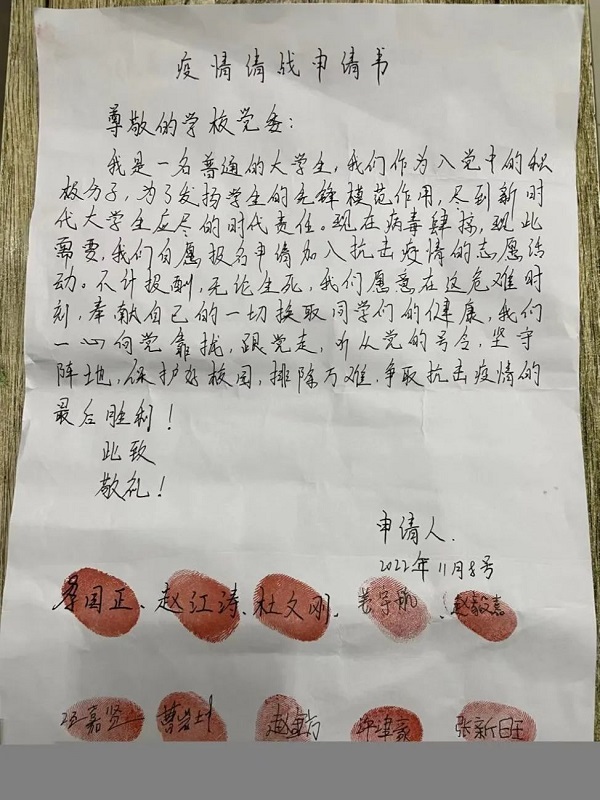 疫情请战申请书
尊敬的学校党委:
我是一名普通的大学生,我们作为入党中的积
极分子,为了发扬学生的先锋模范作用,尽到新时
代大学生应尽的时代责任。现在病毒肆掠,现此
需要,我们自愿报名申请加入抗击疫情的志愿活
动。不计报酬,无论生死,我们愿意在这危难时
刻,奉献自己的一切换取同学们的健康,我们
一心向党靠拢,跟党走,听从党的号令,坚守
阵地,保护好校园,排除万难,争取抗击疫情的
最后胜利!
此致
敬礼!
申请人.
2022年11月8号
李国正、赵江涛、杜文刚、赵敬嘉
嘉贤 张新旺